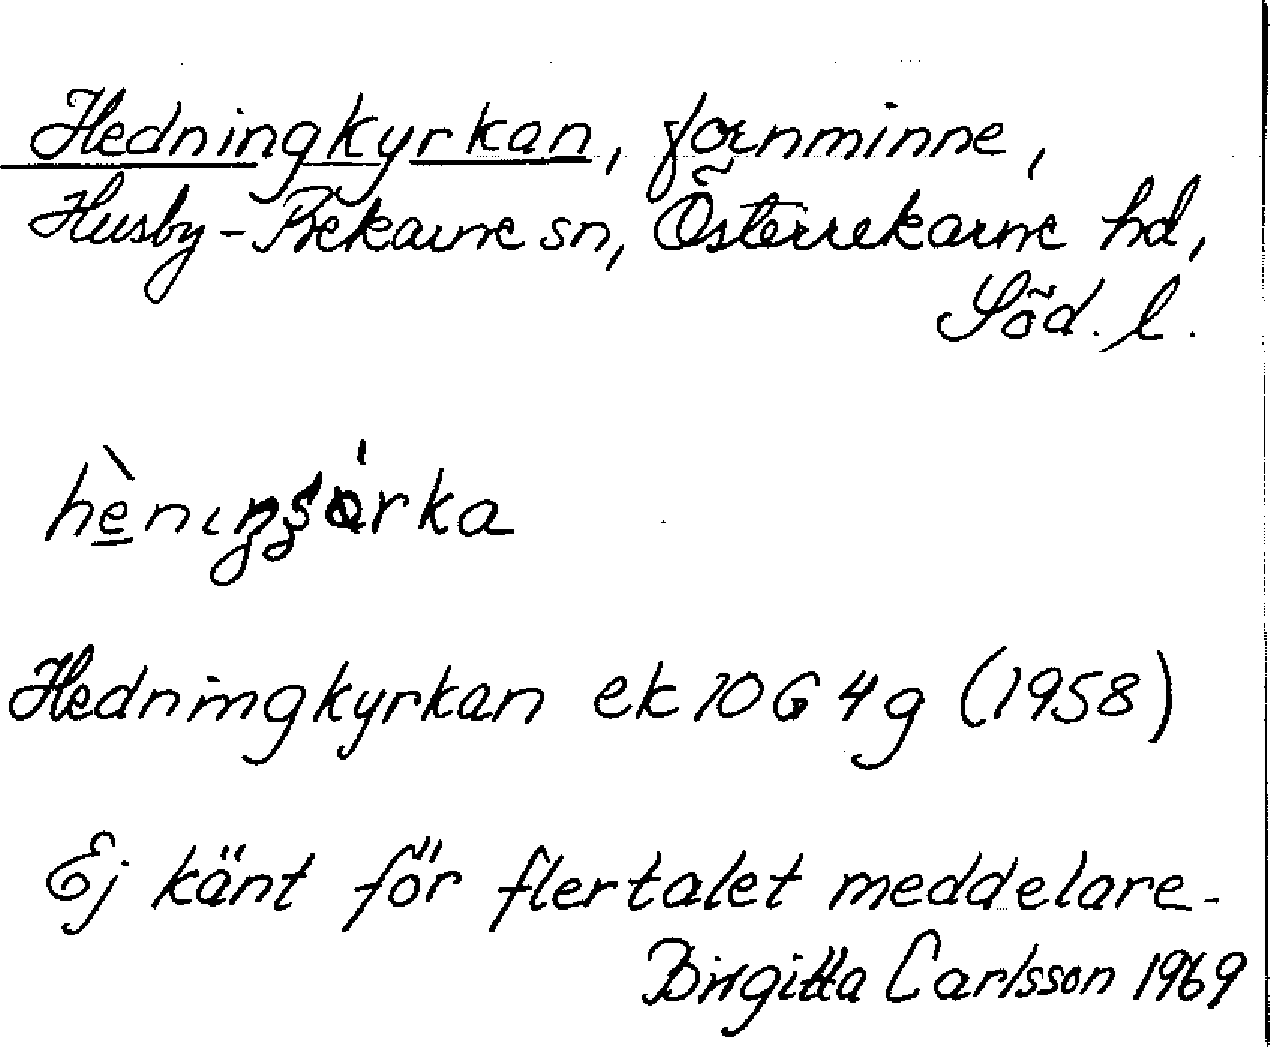 Hedningkyrkan, fornminne,
Husby-Rekarne sn, Österrekarne hd,
Söd. l.
Hedningkyrkan ek 10G 4g (1958)
Ej känt för flertalet meddelare.
Birgitta Carlsson 1969